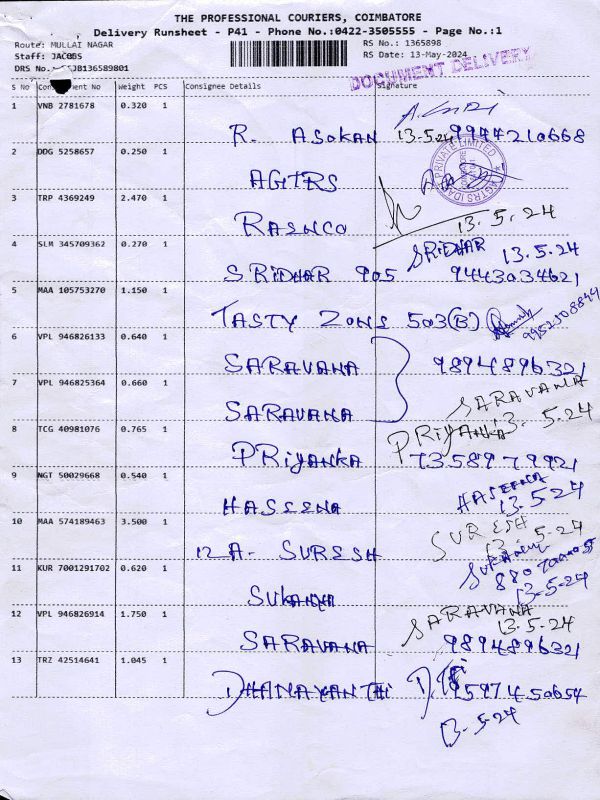 THE PROFESSIONAL COURIERS, COIMBATORE
Delivery Runsheet - P41 - Phone No.:0422-3505555 - Page No.:1
Route: MULLAI NAGAR
RS No.: 1365898
Staff: JACOBS
RS Date: 13-May-2024
DRS No.
JB136589801
DOCUMENT DELIVERY
S No Consignment No Weight PCS Consignee Details Signature
1 VNB 2781678 0.320 1
R. ASOKAN 13.5.24 9944210668
2 DDG 5258657 0.250 1
AGTRS
PRIVATE LIMITED
3 TRP 4369249 2.470 1
RASNCO 13.5.24
4 SLM 345709362 0.270 1
SRIDHAR 13.5.24
SRIDHAR 905 9443034621
5 MAA 105753270 1.150 1
TASTY ZONS 503(B)
6 VPL 946826133 0.640 1
SARAVANA 9894896321
7 VPL 946825364 0.660 1
SARAVANA
13.5.24
SARAVANA
8 TCG 40981076 0.765 1
PRIYANKA
PRIYANKA 7358979921
9 NGT 50029668 0.540 1
HASEENA
13.5.24
HASSENA
10 MAA 574189463 3.500 1
SURESH
13.5.24
12A- SURESH
11 KUR 7001291702 0.620 1
13.5.24
SUKANYA
12 VPL 946826914 1.750 1
SARAVANA
13.5.24
SARAVANA 9894896321
13 TRZ 42514641 1.045 1
DHANAYANTHI 9597450654
13-5-24